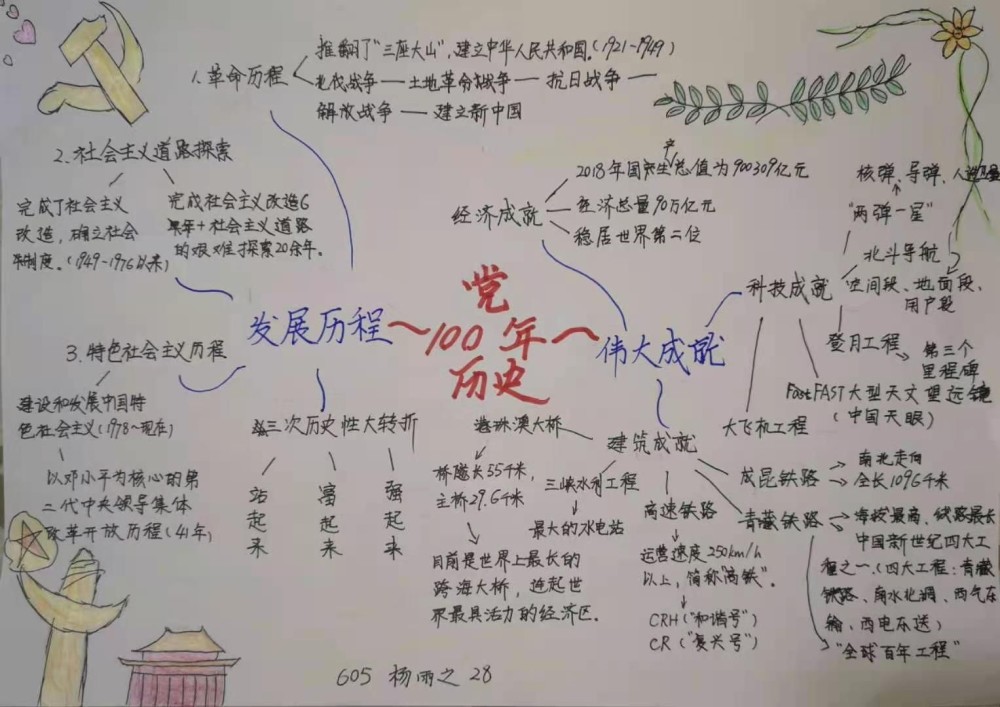 党
100年
历史
发展历程
1.革命历程
推翻了"三座大山",建立中华人民共和国。(1921~1949)
北伐战争——土地革命战争——抗日战争——
解放战争——建立新中国
2.社会主义道路探索
完成了社会主义
改造,确立社会
制度。(1949-1976以来)
完成社会主义改造6
年+社会主义道路
的艰难探索20余年。
3.特色社会主义历程
建设和发展中国特
色社会主义(1978~现在)
以邓小平为核心的第
二代中央领导集体
改革开放历程(41年)
三次历史性大转折
站起来
富起来
强起来
伟大成就
经济成就
2018年国民生产总值为900309亿元
经济总量90万亿元
稳居世界第二位
科技成就
核弹、导弹、人造卫星
"两弹一星"
北斗导航
空间段、地面段、
用户段
登月工程
第三个
里程碑
FAST大型天文望远镜
(中国天眼)
大飞机工程
建筑成就
港珠澳大桥
桥隧长55千米,
主桥29.6千米
目前是世界上最长的
跨海大桥,连起世
界最具活力的经济区.
三峡水利工程
最大的水电站
高速铁路
运营速度250km/h
以上,简称"高铁"。
CRH("和谐号")
CR("复兴号")
成昆铁路
南北走向
全长1096千米
青藏铁路
海拔最高、线路最长
中国新世纪四大工
程之一.(四大工程:青藏
铁路、南水北调、西气东
输、西电东送)
"全球百年工程"
605 杨丽之 28